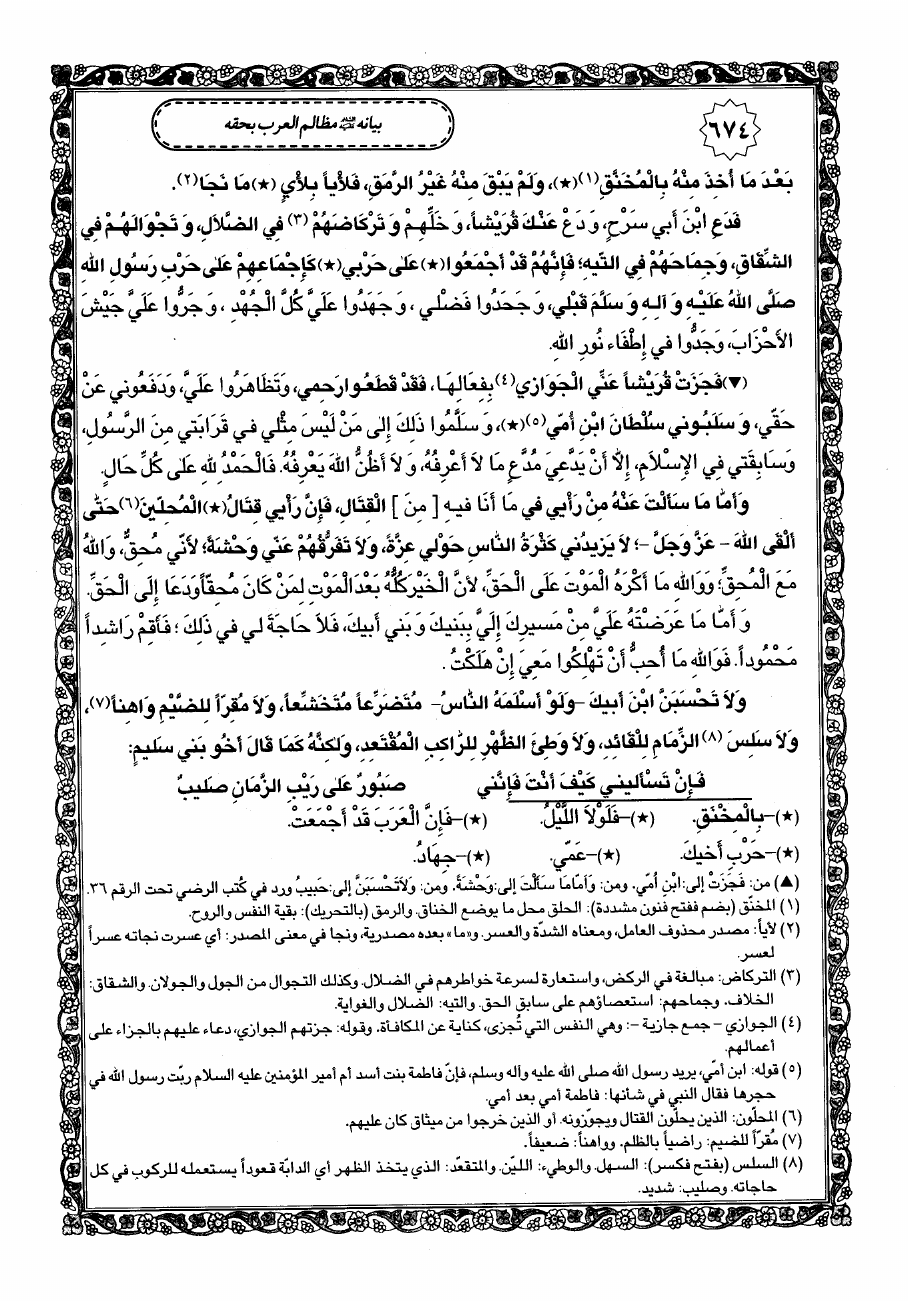 ٦٧٤
بيانه عليه السلام مظالم العرب بحقه
بَعْدَ مَا أُخِذَ مِنْهُ بِالْمُخَنَّقِ(١)(★)، وَلَمْ يَبْقَ مِنْهُ غَيْرُ الرَّمَقِ، فَلَأْياً بِلَأْيٍ (★) مَا نَجَا(٢).
فَدَعِ ابْنَ أَبي سَرْحٍ، وَ دَعْ عَنْكَ قُرَيْشاً، وَ خَلِّهِمْ وَ تَرْكَاضَهُمْ (٣) فِي الضَّلَالِ، وَ تَجْوَالَهُمْ فِي
الشِّقَاقِ، وَجِمَاحَهُمْ فِي التّيهِ؛ فَإِنَّهُمْ قَدْ أَجْمَعُوا(★) عَلى حَرْبي(★) كَإِجْمَاعِهِمْ عَلى حَرْبِ رَسُولِ اللهِ
صَلَّى اللهُ عَلَيْهِ وَ آلِهِ وَ سَلَّمَ قَبْلي، وَ جَحَدُوا فَضْلي، وَ جَهَدُوا عَلَيَّ كُلَّ الْجُهْدِ، وَ جَرُّوا عَلَيَّ جَيْشَ
الأَحْزَابِ، وَ جَدُّوا في إِطْفَاءِ نُورِ اللهِ.
(▼) فَجَزَتْ قُرَيْشاً عَنِّي الْجَوَازي(٤) بِفِعَالِهَا، فَقَدْ قَطَعُوا رَحِمي، وَتَظَاهَرُوا عَلَيَّ، وَدَفَعُوني عَنْ
حَقّي، وَ سَلَبُوني سُلْطَانَ ابْنِ أُمّي(٥)(★)، وَ سَلَّمُوا ذلِكَ إِلى مَنْ لَيْسَ مِثْلي في قَرَابَتي مِنَ الرَّسُولِ،
وَسَابِقَتي فِي الإِسْلَامِ، إِلَّا أَنْ يَدَّعِيَ مُدَّعٍ مَا لَا أَعْرِفُهُ، وَ لَا أَظُنُّ اللهَ يَعْرِفُهُ. فَالْحَمْدُ للهِ عَلى كُلِّ حَالٍ.
وَأَمَّا مَا سَأَلْتَ عَنْهُ مِنْ رَأْيي في مَا أَنَا فيهِ [ مِنَ ] الْقِتَالِ، فَإِنَّ رَأْيي قِتَالُ(★) الْمُحِلّينَ(٦) حَتّى
أَلْقَى اللهَ - عَزَّ وَجَلَّ -؛ لَا يَزيدُني كَثْرَةُ النَّاسِ حَوْلي عِزَّةً، وَلَا تَفَرُّقُهُمْ عَنّي وَحْشَةً؛ لأَنّي مُحِقٌّ، وَاللهُ
مَعَ الْمُحِقِّ؛ وَوَاللهِ مَا أَكْرَهُ الْمَوْتَ عَلَى الْحَقِّ، لأَنَّ الْخَيْرَ كُلَّهُ بَعْدَ الْمَوْتِ لِمَنْ كَانَ مُحِقّاً وَدَعَا إِلَى الْحَقِّ.
وَ أَمَّا مَا عَرَضْتَهُ عَلَيَّ مِنْ مَسيرِكَ إِلَيَّ بِبَنيكَ وَ بَني أَبيكَ، فَلَا حَاجَةَ لي في ذلِكَ؛ فَأَقِمْ رَاشِداً
مَحْمُوداً. فَوَاللهِ مَا أُحِبُّ أَنْ تَهْلِكُوا مَعِيَ إِنْ هَلَكْتُ.
وَلَا تَحْسَبَنَّ ابْنَ أَبيكَ -وَلَوْ أَسْلَمَهُ النَّاسُ- مُتَضَرِّعاً مُتَخَشِّعاً، وَلَا مُقِرّاً لِلضَّيْمِ وَاهِناً(٧)،
وَلَا سَلِسَ(٨) الزِّمَامِ لِلْقَائِدِ، وَلَا وَطِئَ الظَّهْرِ لِلرَّاكِبِ الْمُقْتَعِدِ، وَلكِنَّهُ كَمَا قَالَ أَخُو بَني سَليمٍ:
فَإِنْ تَسْأَليني كَيْفَ أَنْتَ فَإِنَّني صَبُورٌ عَلى رَيْبِ الزَّمَانِ صَليبُ
(★)-بِالْمِخْنَقِ. (★)-فَلَوْلَا اللَّيْلُ. (★)-فَإِنَّ الْعَرَبَ قَدْ أَجْمَعَتْ.
(★)-حَرْبِ أَخيكَ. (★)-عَمّي. (★)-جِهَادُ.
(▲) من: فَجَزَتْ إلى: ابْنِ أُمّي. ومن: وَأَمَّا مَا سَأَلْتَ إلى: وَحْشَةً. ومن: وَلَا تَحْسَبَنَّ إلى: حَبيبُ ورد في كُتب الرضي تحت الرقم ٣٦.
(١) المخنّق (بضم ففتح فنون مشددة): الحلق محل ما يوضع الخناق. والرمق (بالتحريك): بقية النفس والروح.
(٢) لأياً: مصدر محذوف العامل، ومعناه الشدّة والعسر. و«ما» بعده مصدرية، ونجا في معنى المصدر: أي عسرت نجاته عسراً
لعسر.
(٣) التركاض: مبالغة في الركض، واستعارة لسرعة خواطرهم في الضلال. وكذلك التجوال من الجول والجولان. والشقاق:
الخلاف. وجماحهم: استعصاؤهم على سابق الحق. والتيه: الضلال والغواية.
(٤) الجوازي - جمع جازية -: وهي النفس التي تُجزى، كناية عن المكافأة. وقوله: جزتهم الجوازي، دعاء عليهم بالجزاء على
أعمالهم.
(٥) قوله: ابن أمّي، يريد رسول الله صلى الله عليه وآله وسلم، فإنّ فاطمة بنت أسد أم أمير المؤمنين عليه السلام ربّت رسول الله في
حجرها فقال النبي في شأنها: فاطمة أمي بعد أمي.
(٦) المحلّون: الذين يحلّون القتال ويجوّزونه. أو الذين خرجوا من ميثاق كان عليهم.
(٧) مُقرّاً للضيم: راضياً بالظلم. وواهناً: ضعيفاً.
(٨) السلس (بفتح فكسر): السهل. والوطيء: الليّن. والمتقعّد: الذي يتخذ الظهر أي الدابّة قعوداً يستعمله للركوب في كل
حاجاته. وصليب: شديد.